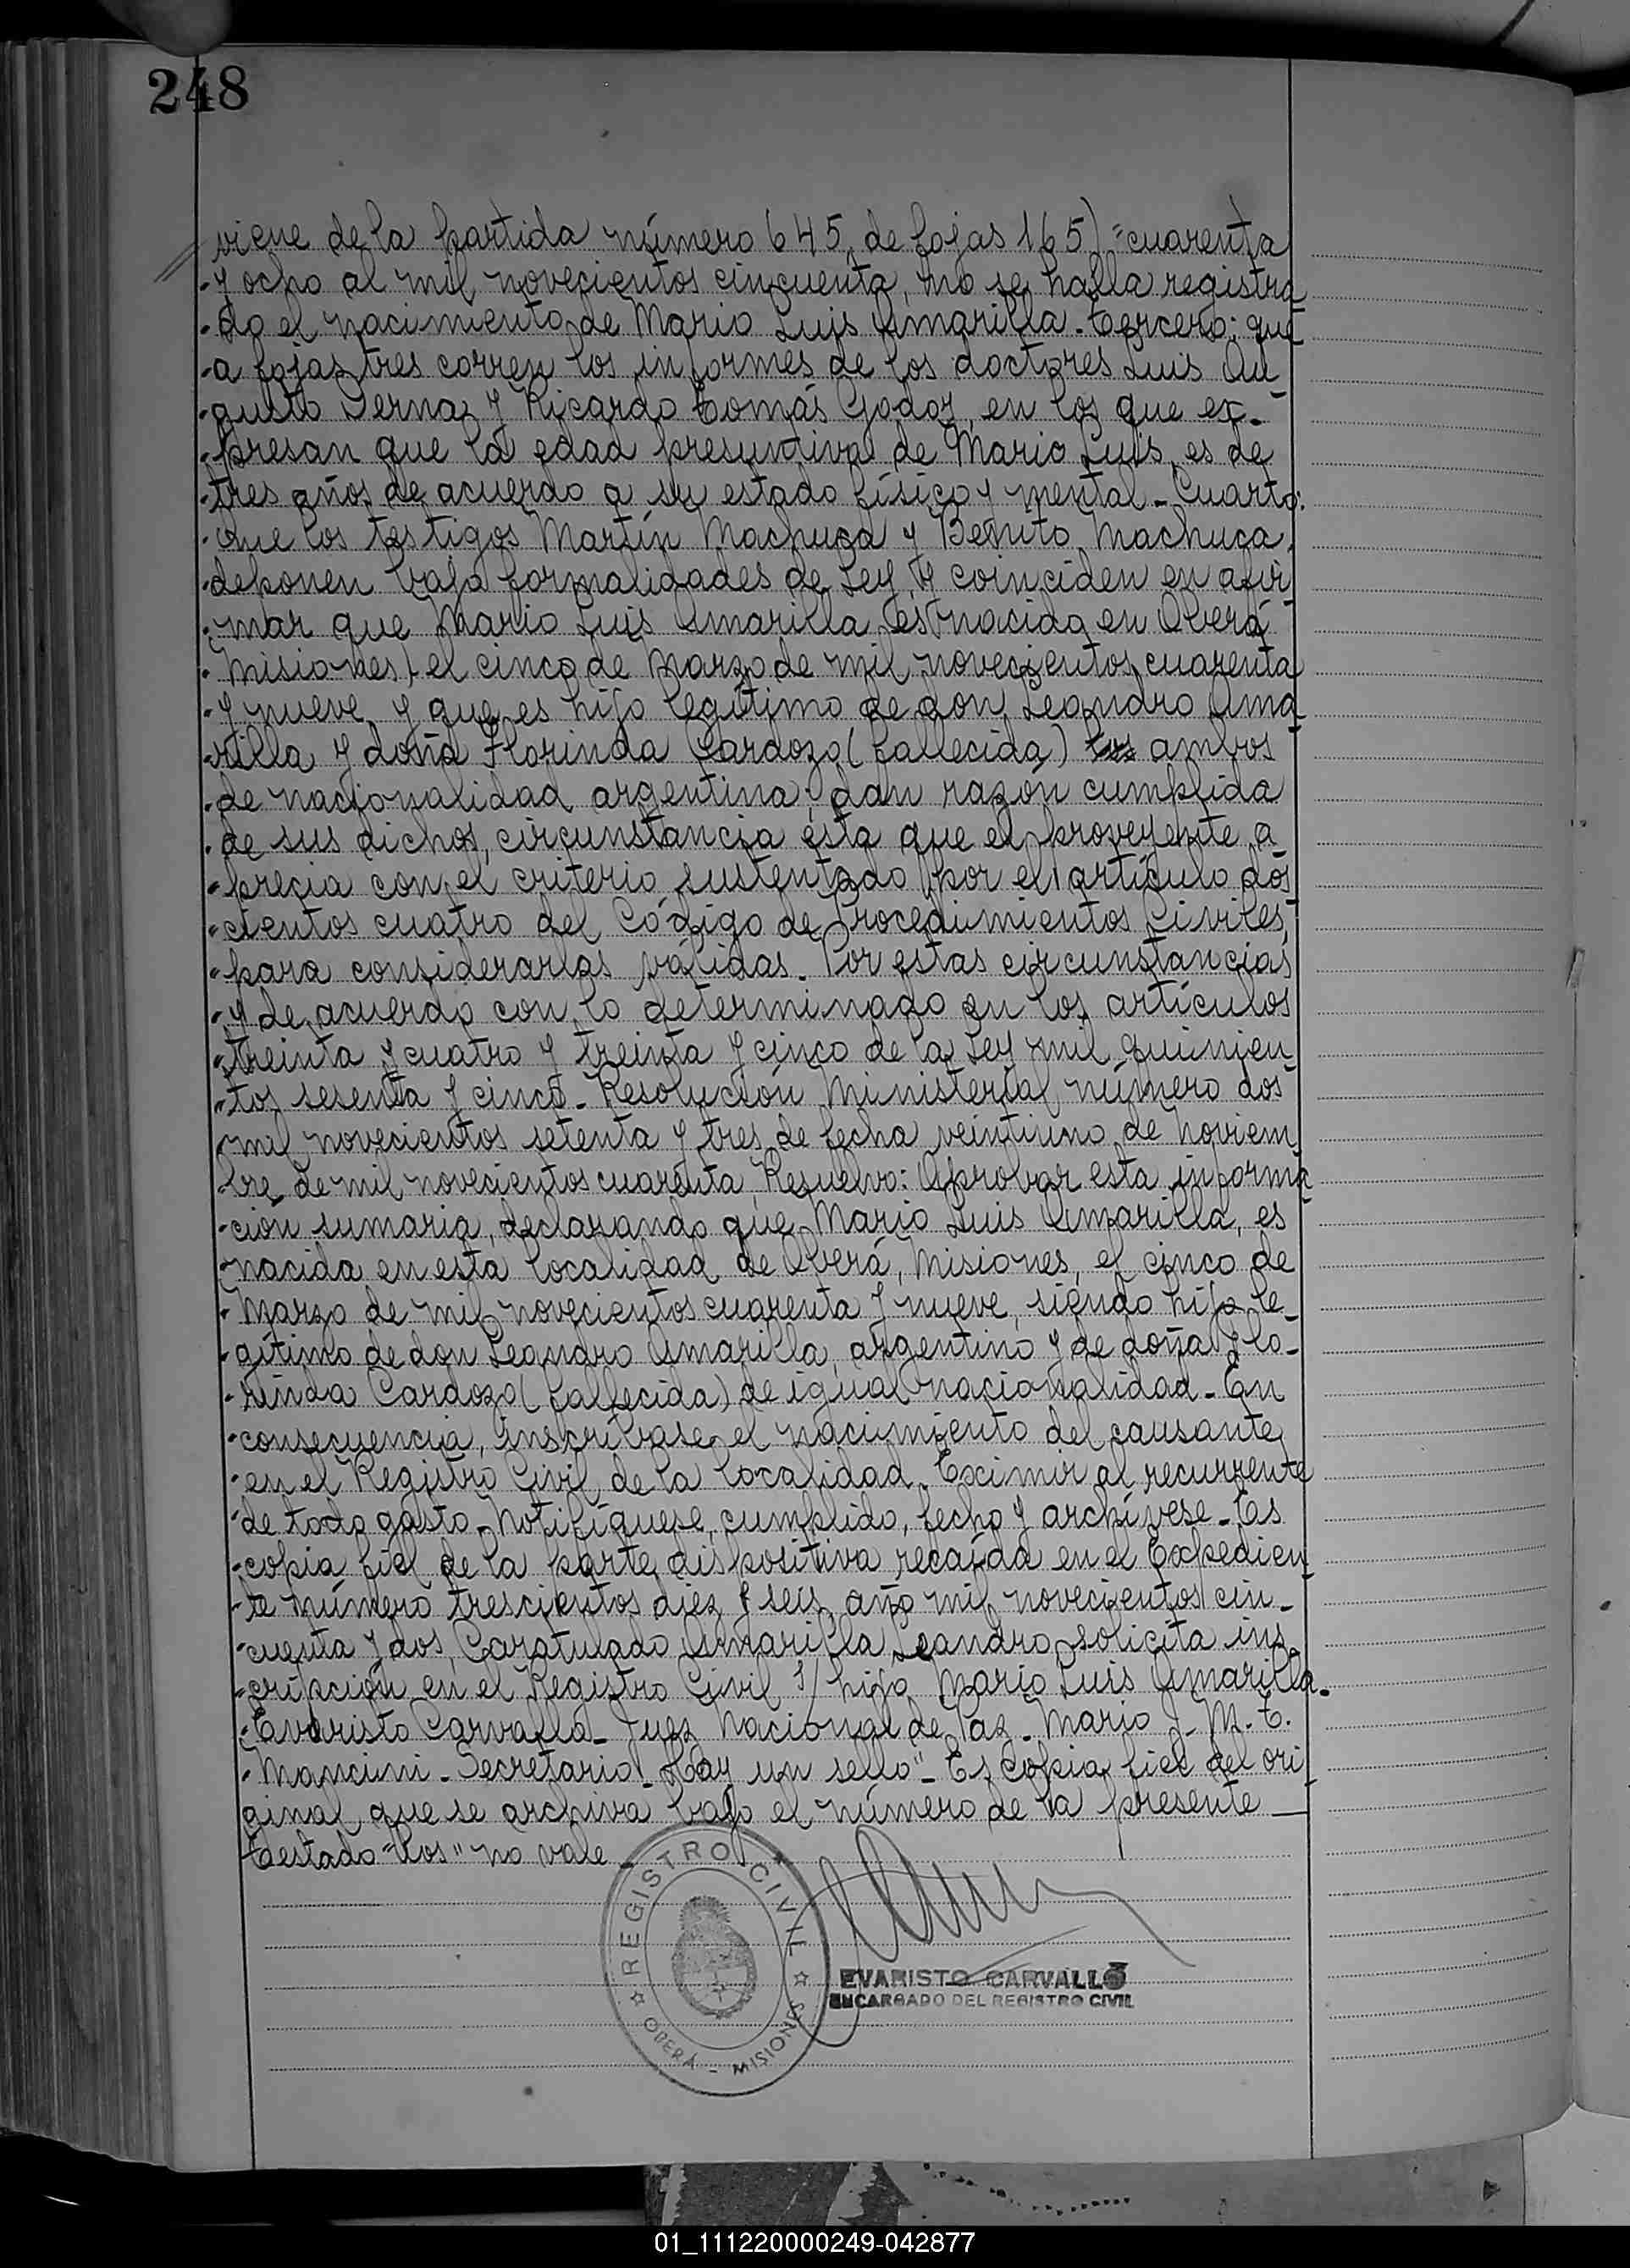 248
viene de la partida número 645 de fojas 165) "cuarenta
"y ocho al mil novecientos cincuenta, no se halla registra
"do el nacimiento de Mario Luis Amarilla - Tercero: que
"a fojas tres corren los informes de los doctores Luis Au
"gusto Derna y Ricardo Tomás Godoy, en los que ex-
"presan que la edad presuntiva de Mario Luis, es de
"tres años de acuerdo a su estado físico y mental - Cuarto:
"Que los testigos Martín Machuca y Benito Machuca,
"deponen bajo formalidades de Ley, y coinciden en afir
"mar que Mario Luis Amarilla es nacida en Oberá
"Misiones) el cinco de Marzo de mil novecientos cuarenta
"y nueve, y que es hijo legítimo de don Leandro Ama
"rilla y doña Florinda Cardozo (fallecida) los ambos
"de nacionalidad argentina; dan razón cumplida
"de sus dichos, circunstancia ésta que el proveyente a
"precia con el criterio sustentado por el artículo dos
"cientos cuatro del Código de Procedimientos Civiles,
"para considerarlas válidas. Por estas circunstancias
"y de acuerdo con lo determinado en los artículos
"treinta y cuatro y treinta y cinco de la Ley mil quinien
"tos sesenta y cinco - Resolución Ministerial número dos
"mil novecientos setenta y tres de fecha veintiuno de noviem
"bre de mil novecientos cuarenta, Resuelvo: Aprobar esta informa
"ción sumaria, declarando que Mario Luis Amarilla, es
"nacida en esta localidad de Oberá, Misiones, el cinco de
"Marzo de mil novecientos cuarenta y nueve, siendo hijo le-
"gítimo de don Leandro Amarilla, argentino y de doña Flo-
"rinda Cardozo (fallecida) de igual nacionalidad - En
"consecuencia, inscríbase el nacimiento del causante
"en el Registro Civil de la localidad. Eximir al recurrente
"de todo gasto - Notifíquese, cumplido, fecho y archívese - Es
"copia fiel de la parte dispositiva recaída en el Expedien
"te número trescientos diez y seis, año mil novecientos cin-
"cuenta y dos, Caratulado Amarilla Leandro solicita ins
"cripción en el Registro Civil s/ hijo Mario Luis Amarilla.
"Evaristo Carvallo - Juez Nacional de Paz - Mario J. M. E.
"Mancini - Secretario - Hay un sello" - Es Copia fiel del ori
ginal que se archiva bajo el número de la presente —
Testado "los" no vale -
REGISTRO CIVIL
OBERÁ - MISIONES
EVARISTO CARVALLO
ENCARGADO DEL REGISTRO CIVIL
01_111220000249-042877